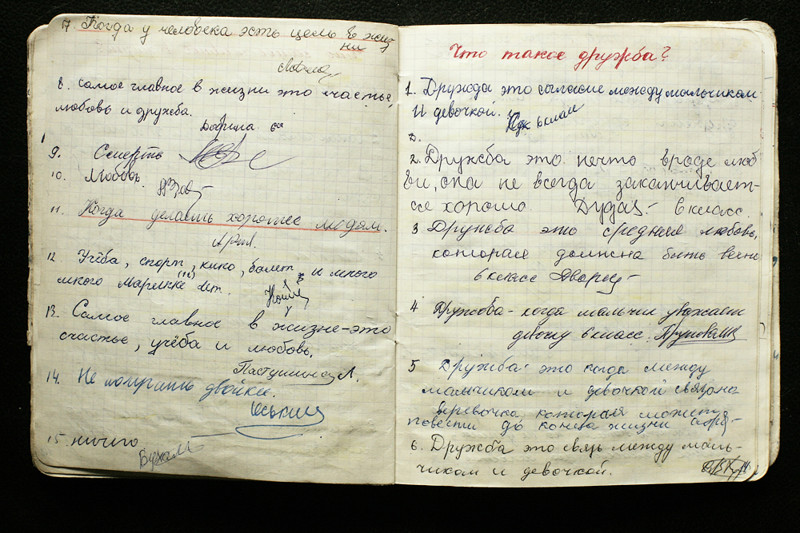 7. Когда у человека эсть цель в жиз
ни
8. самое главное в жизни это счастье,
любовь и дружба.
9. Смерть
10. Любовь.
11. Когда делаешь хорошее людям.
12. Учёба, спорт, кино, балет и много
много
13. Самое главное в жизне-это
счастье, учёба и любовь.
Пастушенко Л.
14. Не получить двойки.
15. ничего
Что такое дружба?
1. Дружба это согласие между мальчиком
и девочкой.
2. Дружба это нечто вроде люб
ви, она не всегда заканчивает-
се хорошо 6 класс.
3 Дружба это средняя любовь,
которая должна быть
6 класс
4 Дружба - когда мальчик уважает
девочку 6 класс.
5 Дружба - это когда между
мальчиком и девочкой связана
верёвочка которая может
повести до конца жизни
6. Дружба это связь между маль-
чиком и девочкой.